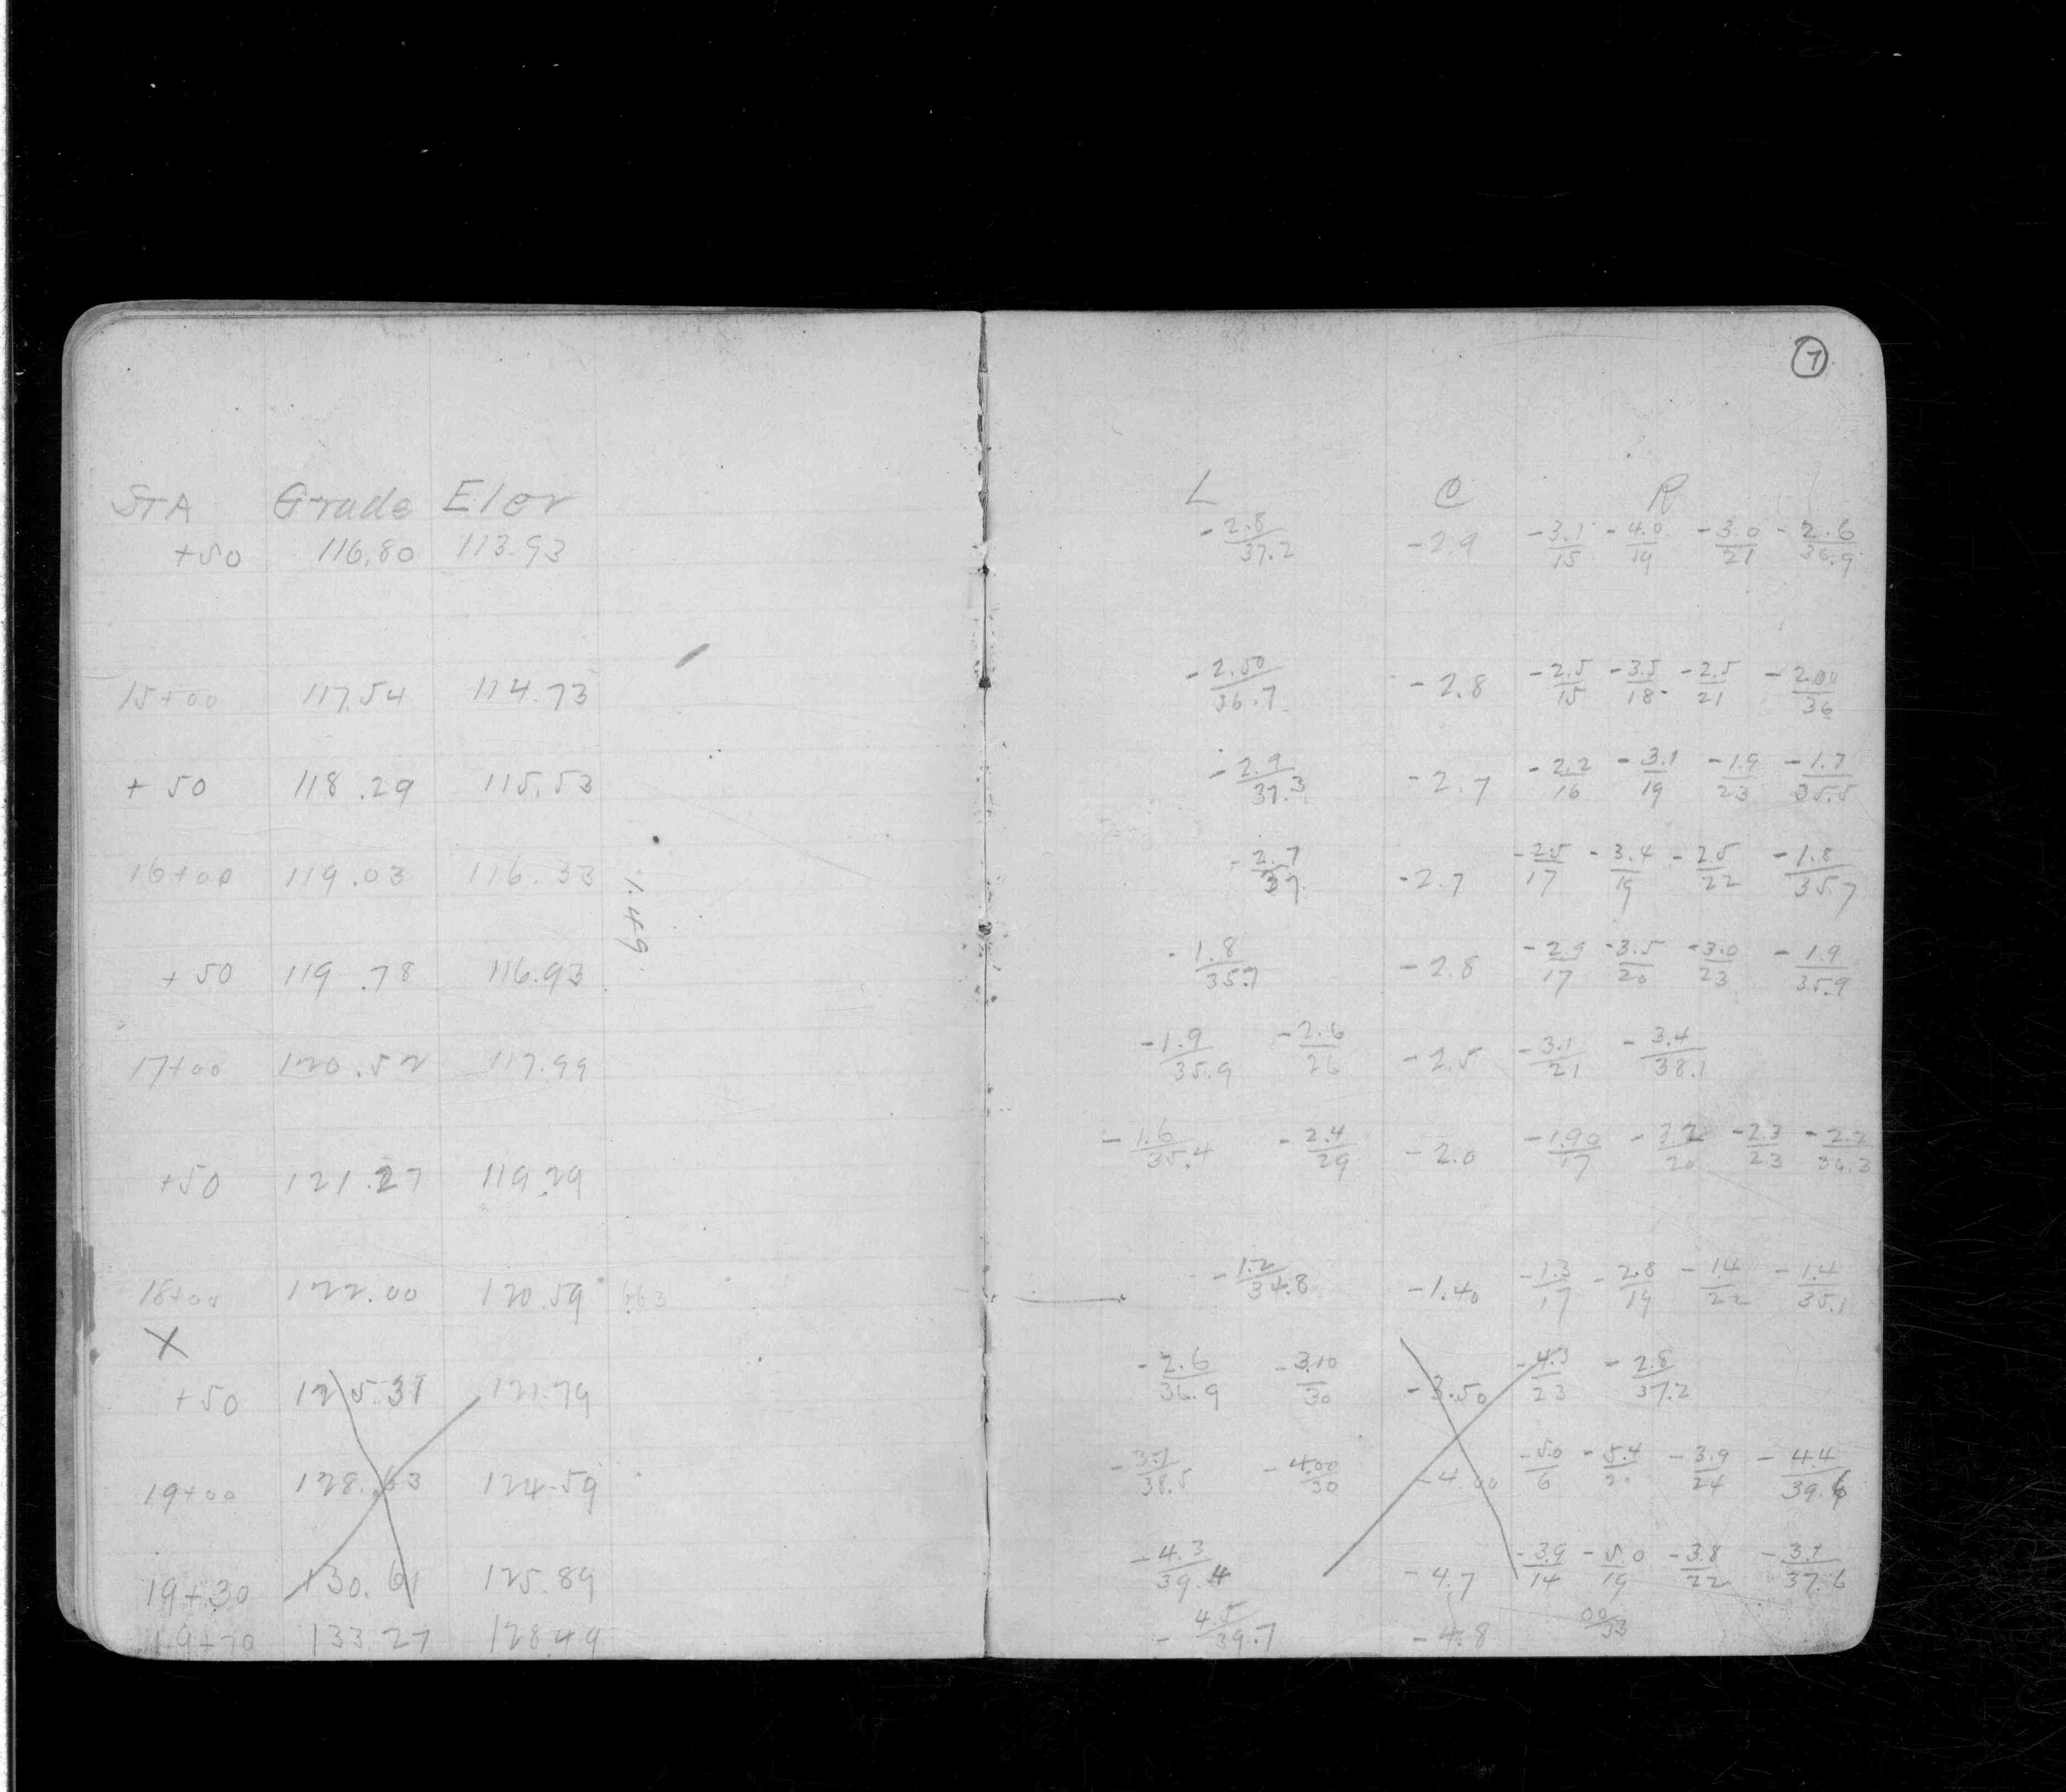 7
STA Grade Elev L C R
+50 116.80 113.93 -2.8/37.2 -2.9 -3.1/15 -4.0/19 -3.0/21 -2.6/36.9
15+00 117.54 114.73 -2.50/36.7 -2.8 -2.5/15 -3.5/18 -2.5/21 -2.00/36
+50 118.29 115.53 -2.9/37.3 -2.7 -2.2/16 -3.1/19 -1.9/23 -1.7/35.5
16+00 119.03 116.33 -2.7/37. -2.7 -2.5/17 -3.4/19 -2.5/22 -1.8/35.7
1.49
+50 119.78 116.93 -1.8/35.7 -2.8 -2.9/17 -3.5/20 -3.0/23 -1.9/35.9
17+00 120.52 117.99 -1.9/35.9 -2.6/26 -2.5 -3.1/21 -3.4/38.1
+50 121.27 119.29 -1.6/35.4 -2.4/29 -2.0 -1.90/17 -3.2/20 -2.3/23 -2.2/36.3
18+00 122.00 120.59 -1.2/34.8 -1.40 -1.3/17 -2.8/19 -1.4/22 -1.4/35.1
X
+50 125.31 121.79 -2.6/36.9 -3.10/30 -3.50 -4.3/23 -2.8/37.2
19+00 128.63 124.59 -3.7/38.5 -4.00/30 -4.00 -5.0/6 -5.4/20 -3.9/24 -4.4/39.6
19+30 130.61 125.89 -4.3/39.4 -4.7 -3.9/14 -5.0/19 -3.8/22 -3.1/37.6
19+70 133.27 128.49 -4.5/39.7 -4.8 00/33